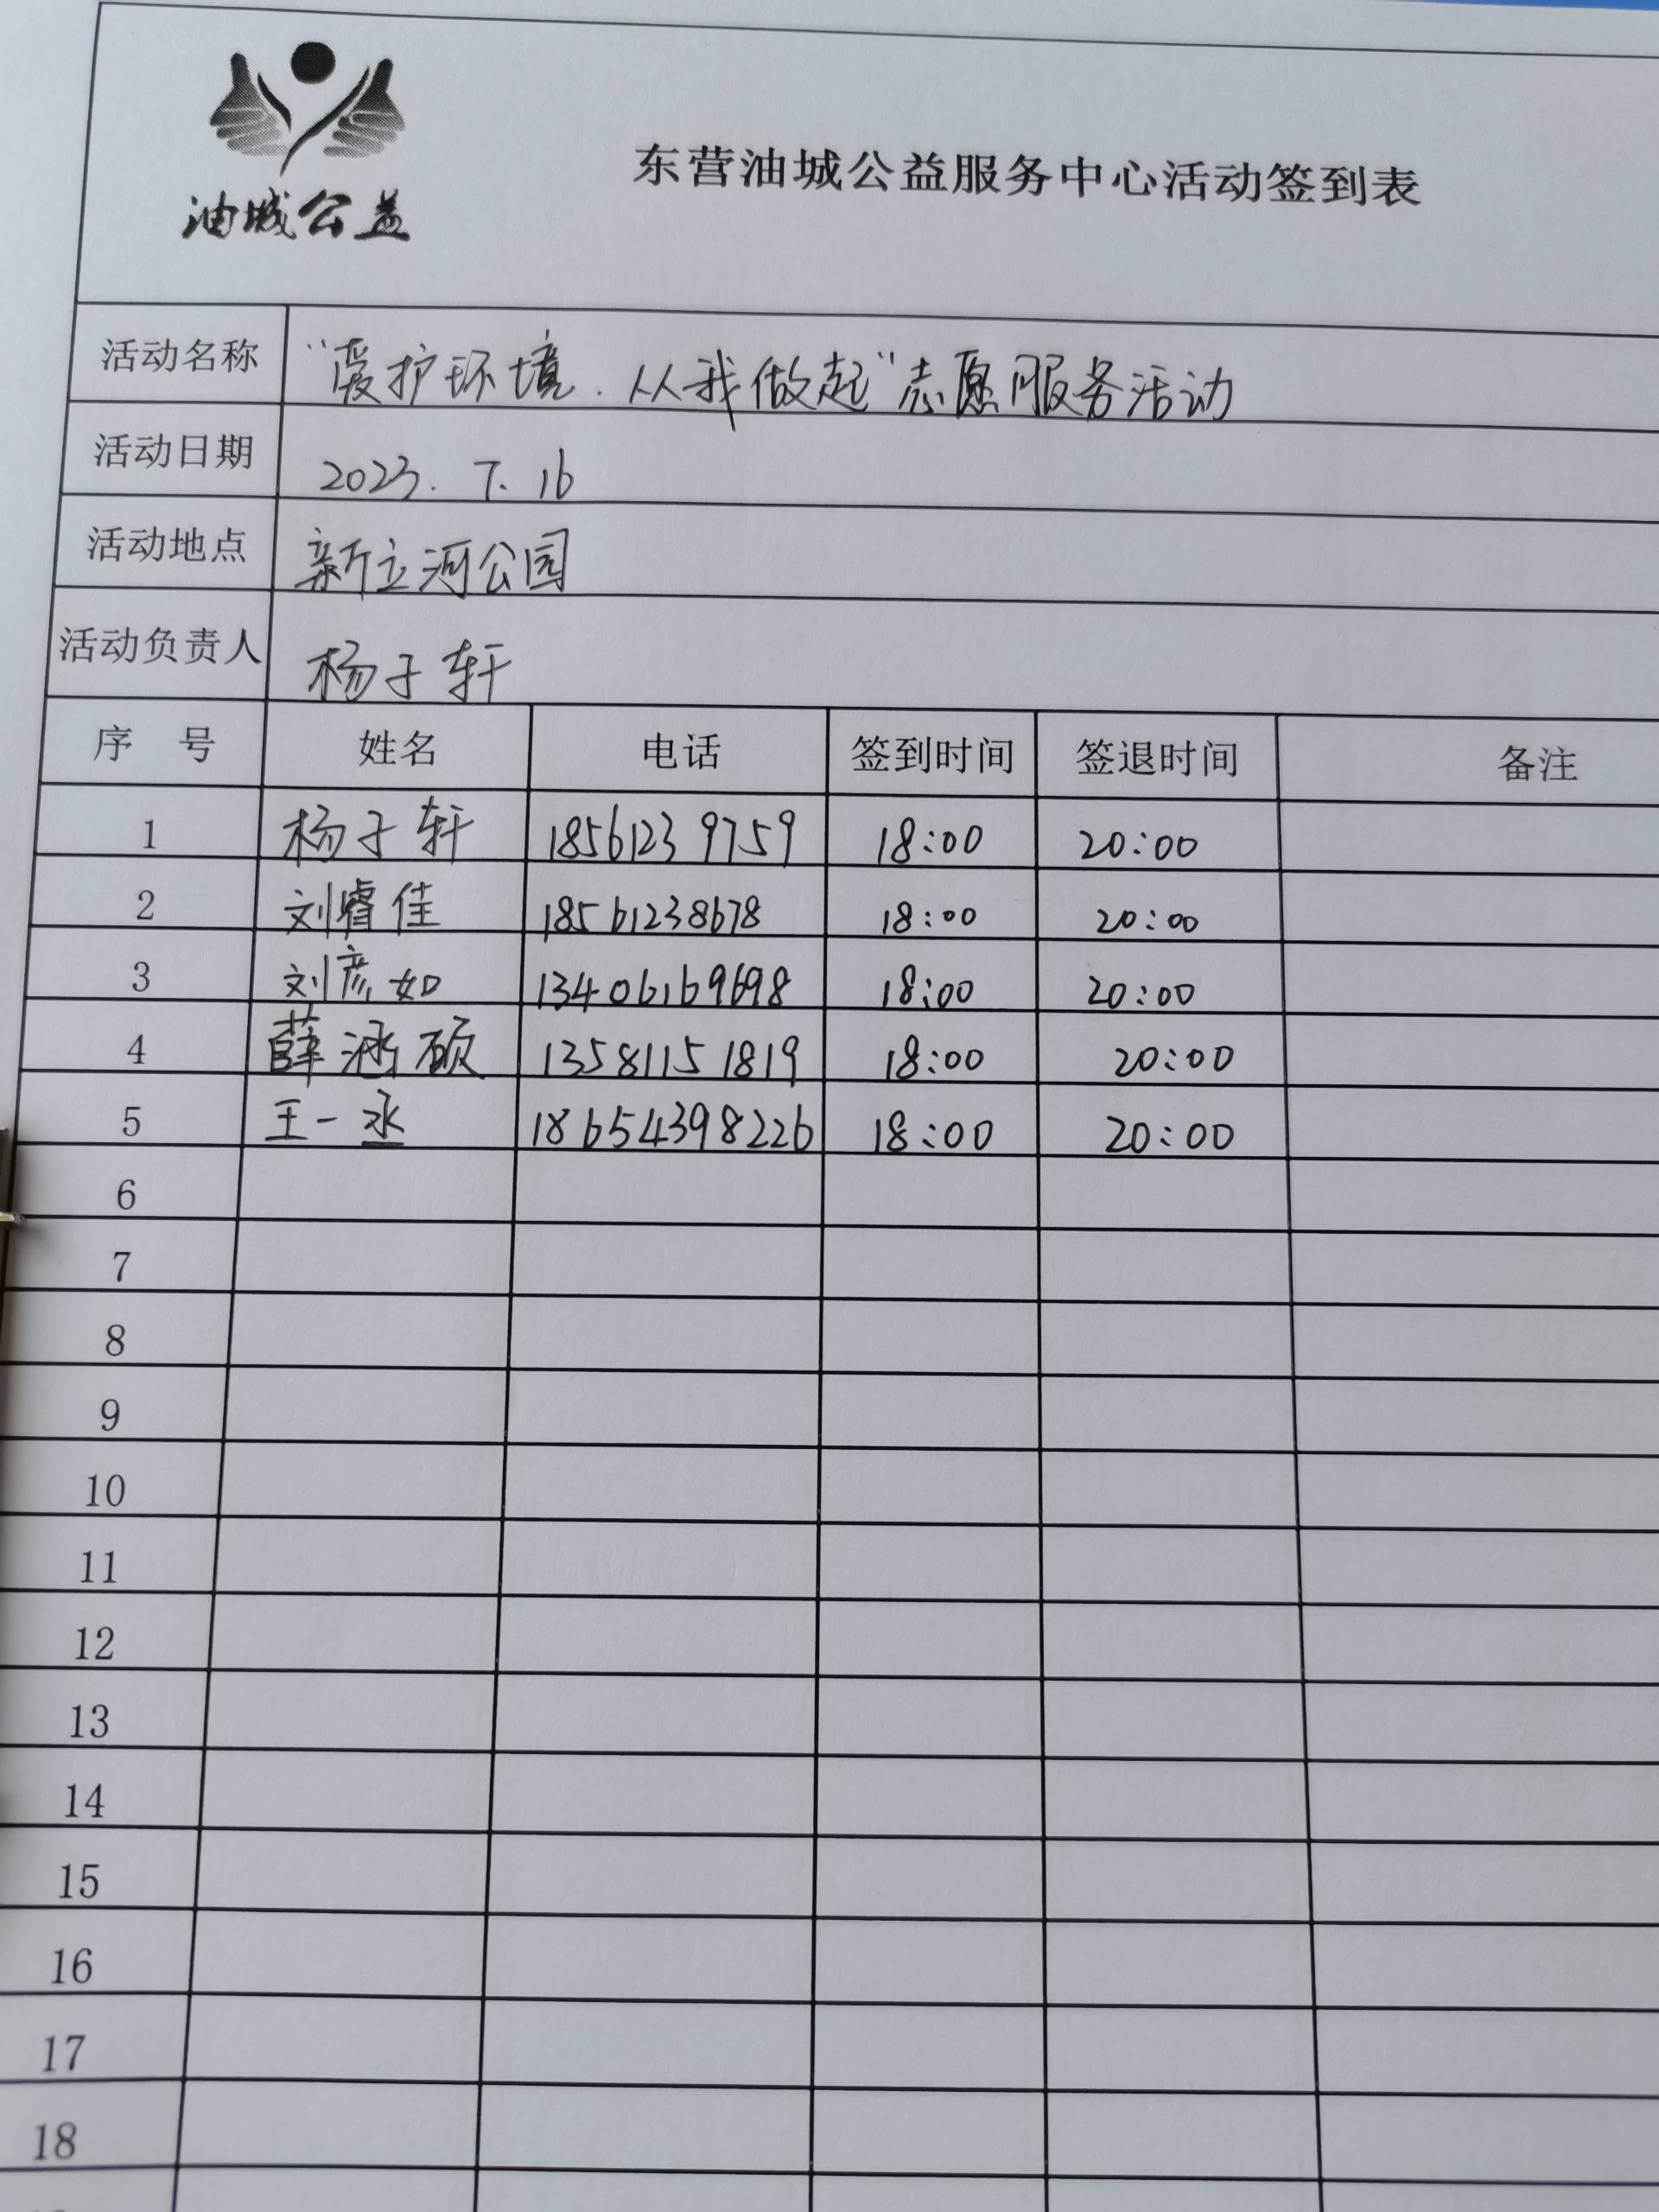 油城公益
东营油城公益服务中心活动签到表
活动名称 “爱护环境.从我做起”志愿服务活动
活动日期 2023.7.16
活动地点 新立河公园
活动负责人 杨子轩
序 号 姓名 电话 签到时间 签退时间 备注
1 杨子轩 18561239759 18:00 20:00
2 刘睿佳 18561238678 18:00 20:00
3 刘彦如 13406169698 18:00 20:00
4 薛涵硕 13581151819 18:00 20:00
5 王一丞 18654398226 18:00 20:00
6
7
8
9
10
11
12
13
14
15
16
17
18